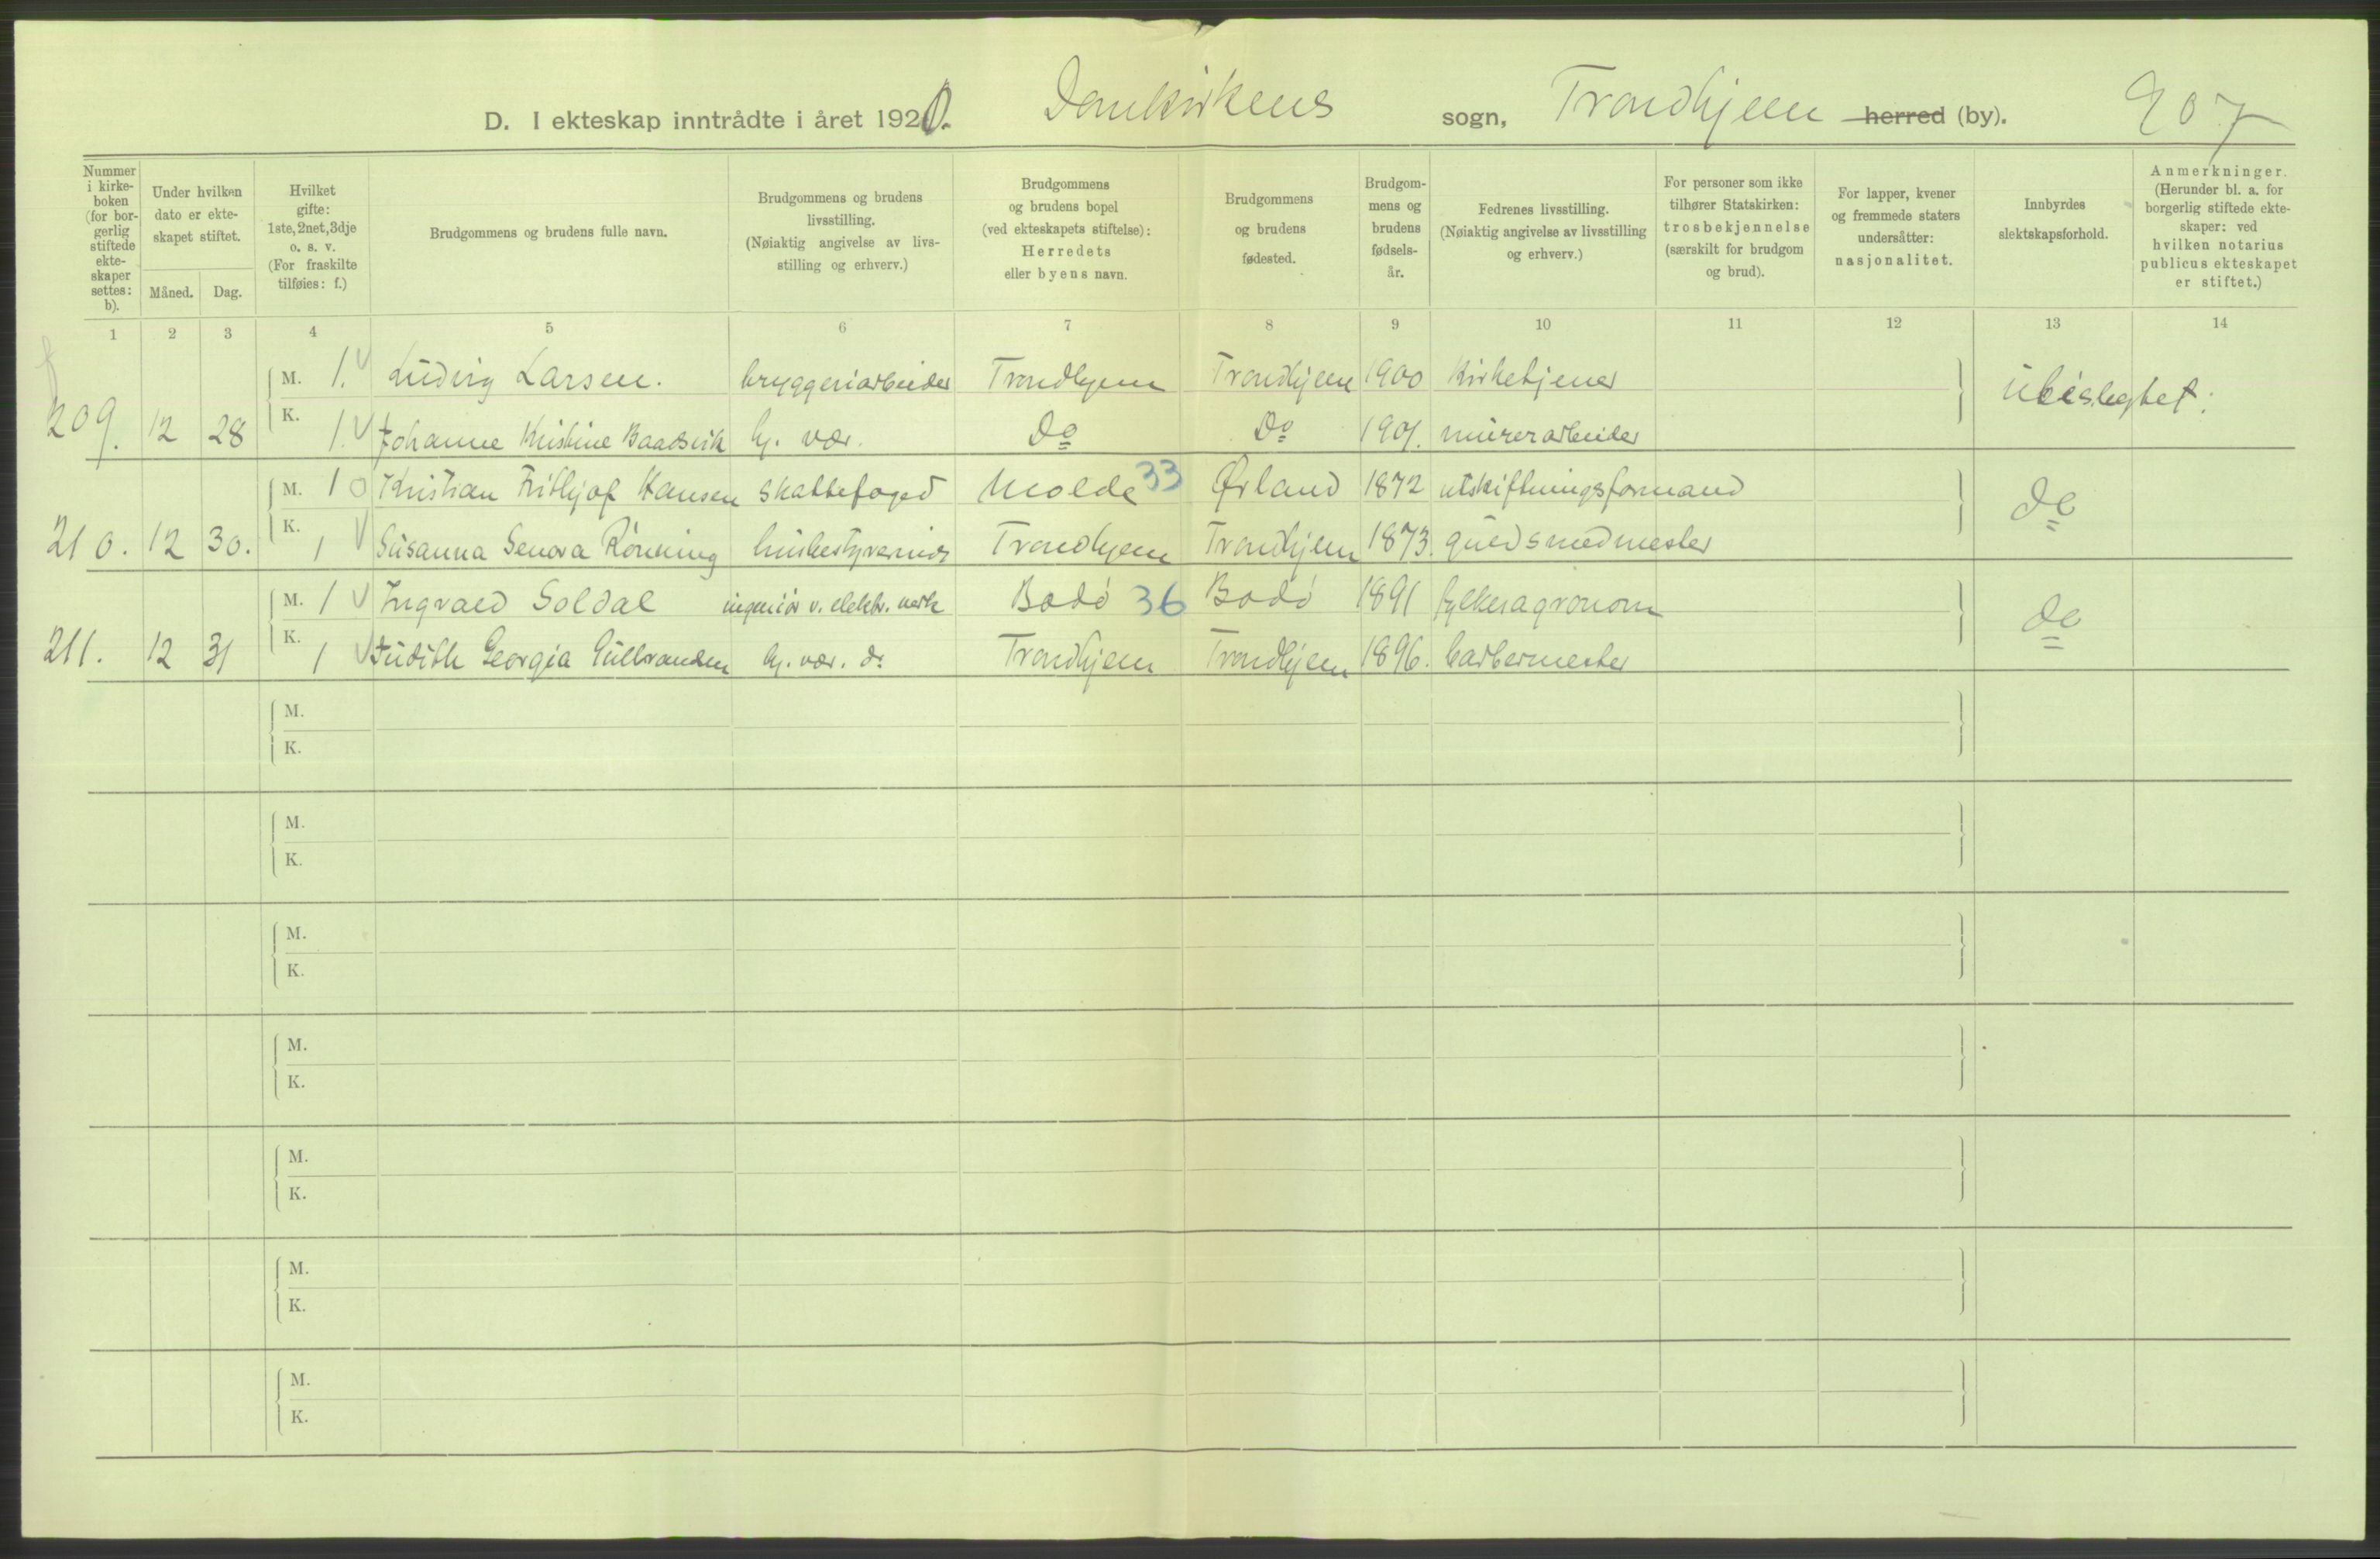 D. I ekteskap inntrådte i året 1920. Domkirkens sogn, Trondhjem herred (by). 907
Nummer i kirkeboken (for borgerlig stiftede ekteskaper settes: b).
Under hvilken dato er ekteskapet stiftet.
Måned. Dag.
Hvilket gifte: 1ste, 2net, 3dje o. s. v. (For fraskilte tilføies: f.)
Brudgommens og brudens fulle navn.
Brudgommens og brudens livsstilling. (Nøiaktig angivelse av livsstilling og erhverv.)
Brudgommens og brudens bopel (ved ekteskapets stiftelse): Herredets eller byens navn.
Brudgommens og brudens fødested.
Brudgommens og brudens fødselsår.
Fedrenes livsstilling. (Nøiaktig angivelse av livsstilling og erhverv.)
For personer som ikke tilhører Statskirken: trosbekjennelse (særskilt for brudgom og brud).
For lapper, kvener og fremmede staters undersåtter: nasjonalitet.
Innbyrdes slektskapsforhold.
Anmerkninger. (Herunder bl. a. for borgerlig stiftede ekteskaper: ved hvilken notarius publicus ekteskapet er stiftet.)
1 2 3 4 5 6 7 8 9 10 11 12 13 14
M. 1. Ludvig Larsen. bryggeriarbeider Trondhjem Trondhjem 1900 Kirketjener
209. 12 28 K. 1. Johanne Kristine Baadsvik hj. vær. Do Do 1901. murerarbeider ubeslegtet.
M. 1 Kristian Frithjof Hansen skattefoged Molde 33 Ørland 1872 utskiftningsformand
210. 12 30. K. 1 Susanna Senora Rönning husbestyrerinde Trondhjem Trondhjem 1873. guldsmedmester do
M. 1 Ingvald Soldal ingeniör v. elektr. verk Bodö 36 Bodö 1891 fylkesagronom
211. 12 31 K. 1 Judith Georgia Gulbrandsen hj. vær. d. Trondhjem Trondhjem 1896. barbermester do
M.
K.
M.
K.
M.
K.
M.
K.
M.
K.
M.
K.
M.
K.